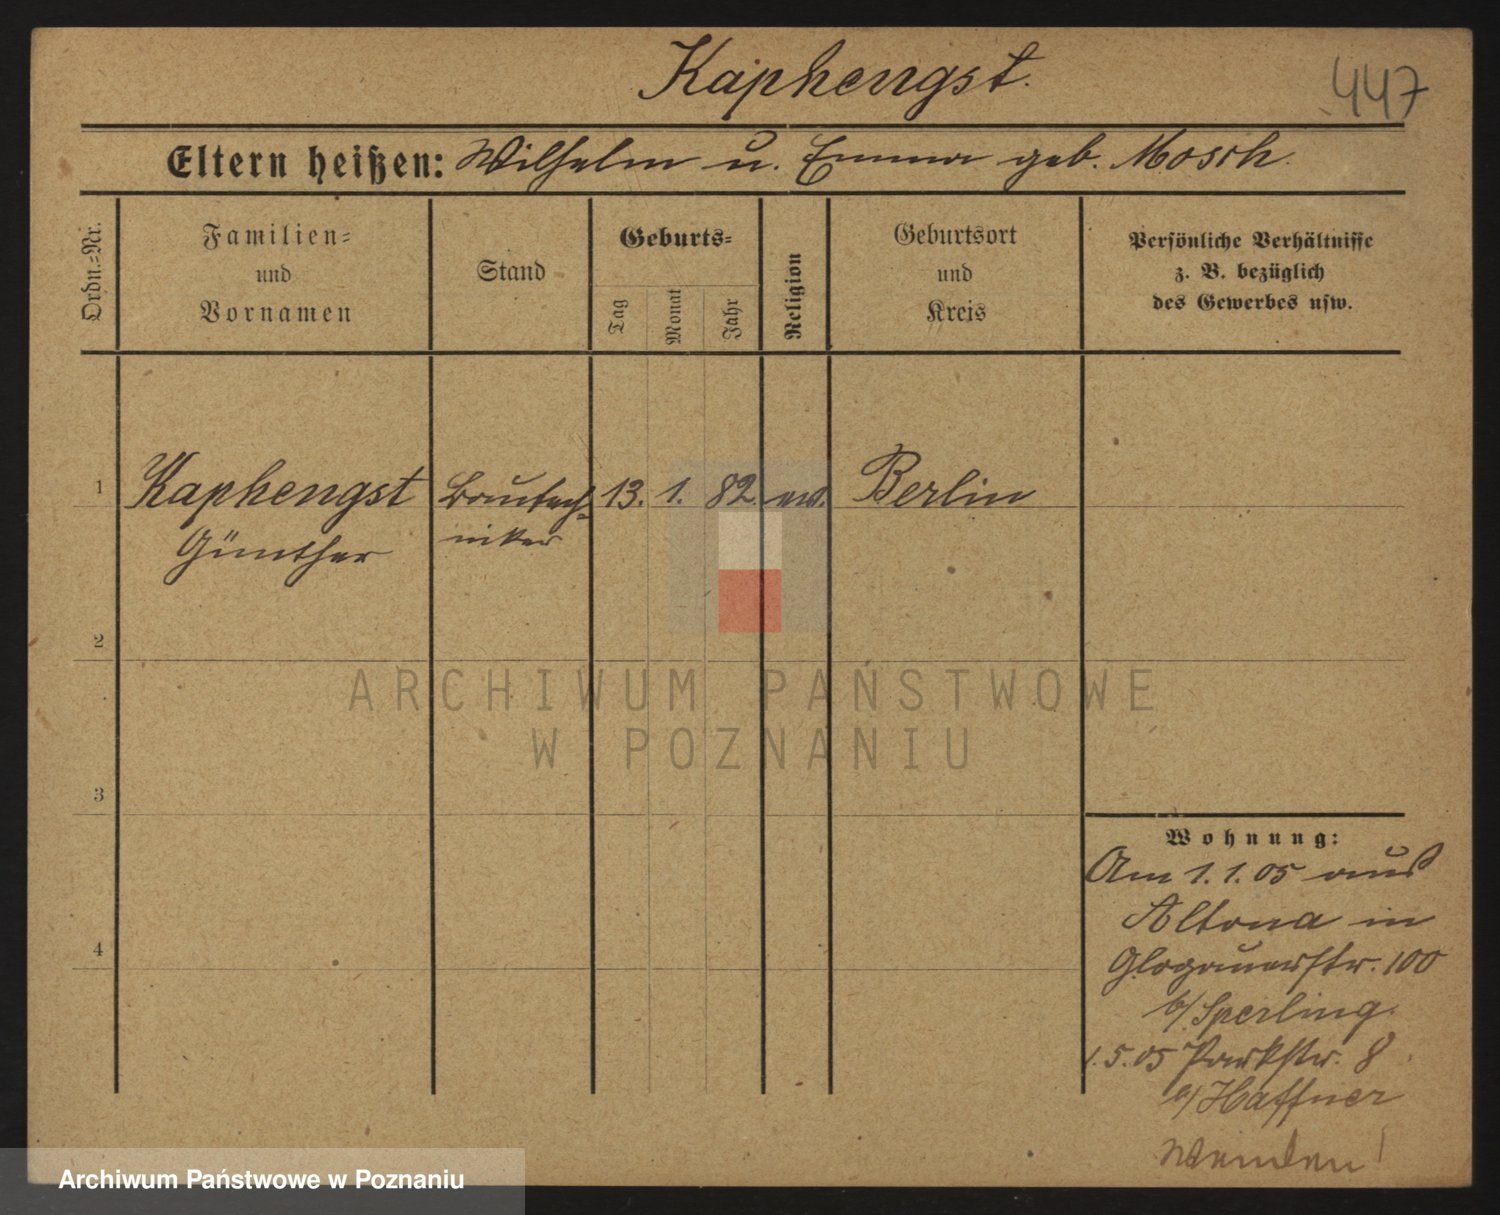 Kaphengst.
447
Eltern heißen: Wilhelm u. Emma geb. Mosch.
Ordn.=Nr.
Familien=
und
Vornamen
Stand
Geburts=
Tag
Monat
Jahr
Religion
Geburtsort
und
Kreis
Persönliche Verhältnisse
z. B. bezüglich
des Gewerbes usw.
1 Kaphengst Bautech= 13. 1. 82. ev. Berlin
Günther niker
2
3
4
Wohnung:
Am 1. 1. 05 aus
Altona in
Glogauerstr. 100
b/ Sperling.
1. 5. 05 Parkstr. 8
b/ Haffner
Wenden!
ARCHIWUM PAŃSTWOWE
W POZNANIU
Archiwum Państwowe w Poznaniu